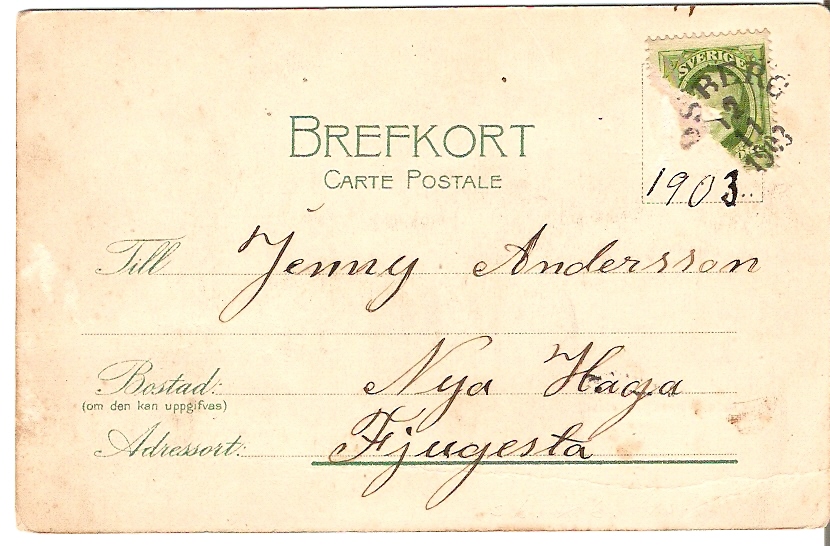 SVERIGE
BERG
1903
BREFKORT
CARTE POSTALE
1903.
Till Jenny Andersson
Bostad: Nya Haga
(om den kan uppgifvas)
Adressort: Fjugesta